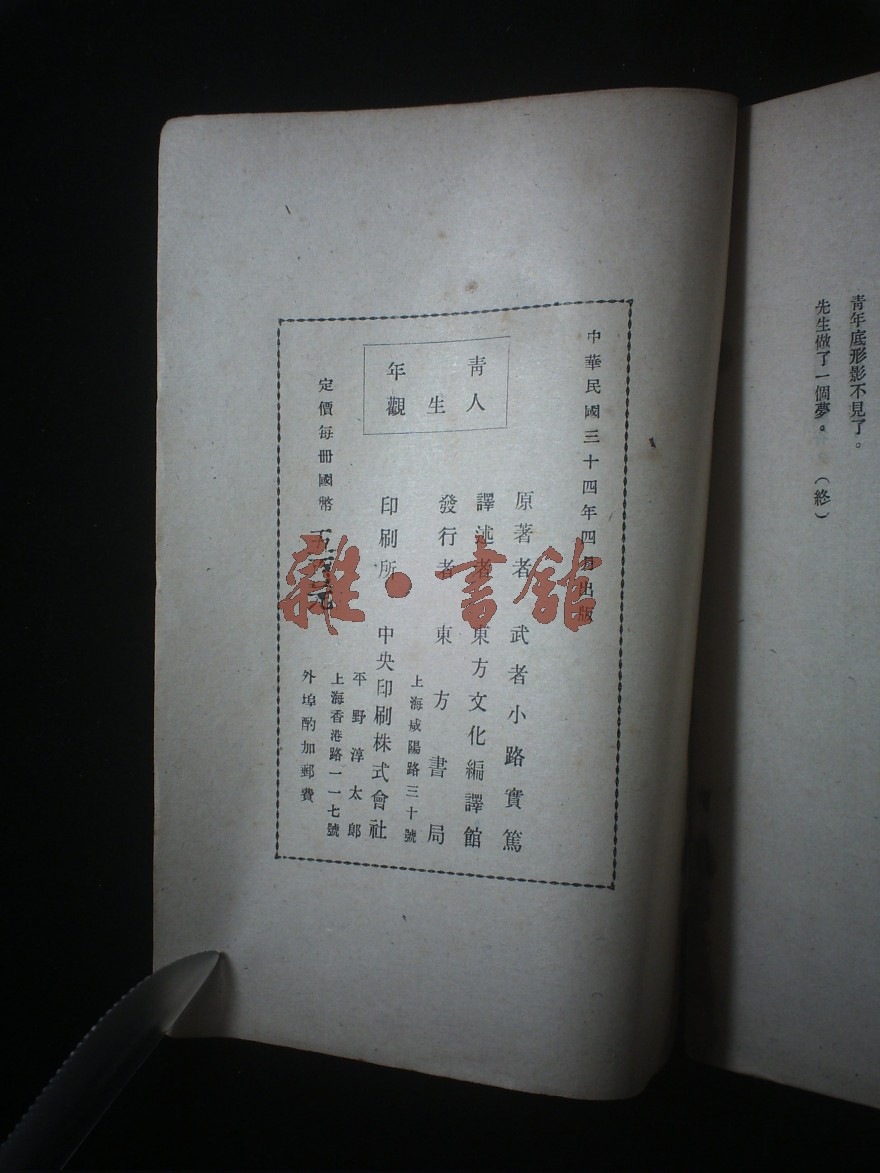 青年底形影不見了。
先生做了一個夢。　（終）
中華民國三十四年四月出版
原著者　武者小路實篤
譯述者　東方文化編譯館
發行者　東方書局
上海咸陽路三十號
印刷所　中央印刷株式會社
平野淳太郎
上海香港路一一七號
青年
人生觀
定價每冊國幣
外埠酌加郵費
雜·書館